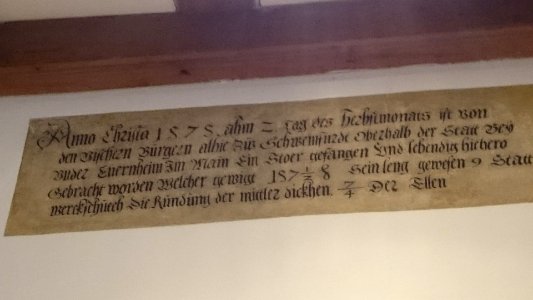 Anno Christi 1575, ahm 2. tag des Herbstmonats ist von
den Vischern Burgern alhie zu Schweinfurdt Oberhalb der Statt Bey
Vnder Euernheim Im Main Ein Stoer gefangen Vnd lebendig hiehero
Gebracht worden Welcher gewigt Sein leng gewesen 9 Statt
werckschuch Die Ründung der mittler dickhen. 7/4 Der Ellen